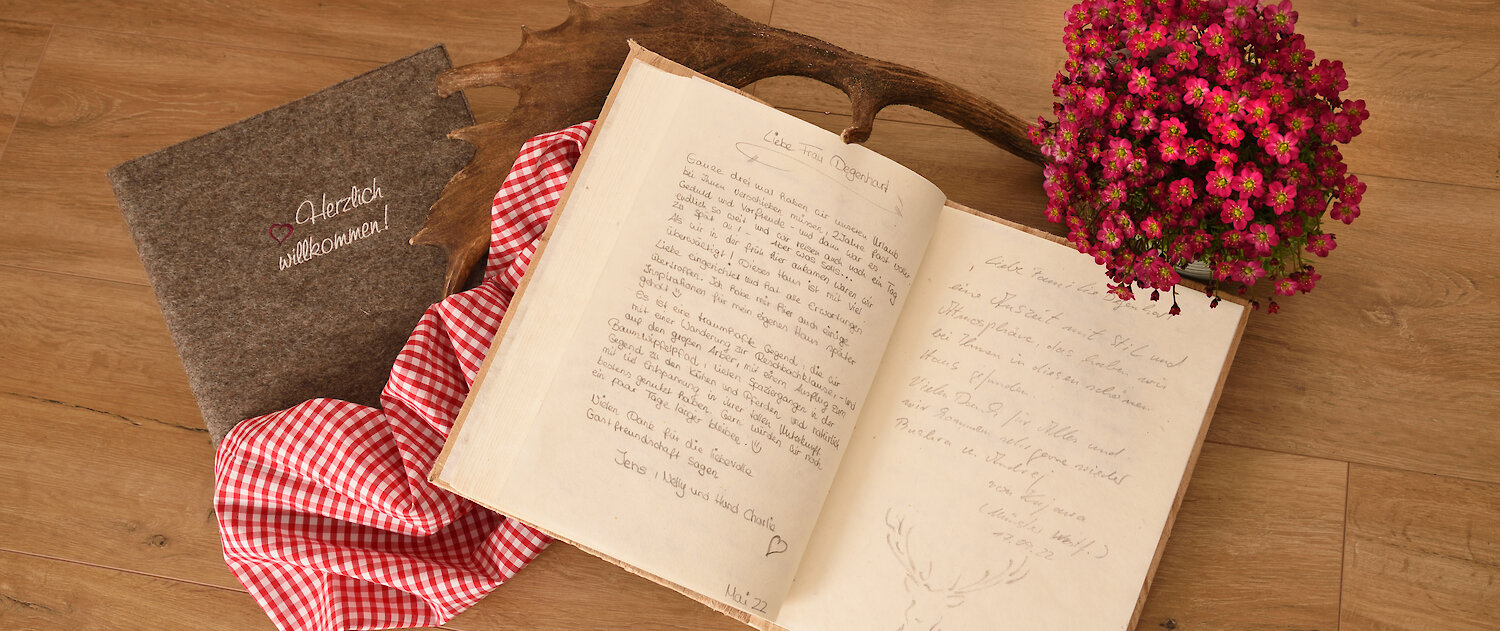 Herzlich
willkommen!
Liebe Frau Degenhart
Ganze drei mal haben wir unseren Urlaub
bei Ihnen verschieben müssen! 2 Jahre fast voller
Geduld und Vorfreude - und dann war es
endlich so weit und wir reisen auch noch ein Tag
zu spät an! - Aber was solls...
Als wir in der früh hier ankamen waren wir
überwältigt! Dieses Haus ist mit viel
Liebe eingerichtet und hat alle Erwartungen
übertroffen. Ich habe mir hier auch einige
Inspirationen für mein eigenes Haus später
geholt
Es ist eine traumhafte Gegend, die wir
mit einer Wanderung zur Reschbachklause, - und
auf den großen Arber, mit einem Ausflug zum
Baumwipfelpfad, vielen Spaziergängen in der
Gegend zu den Kühen und Pferden und natürlich
mit viel Entspannung in ihrer tollen Unterkunft
bestens genutzt haben. Gern würden wir noch
ein paar Tage länger bleiben.
Vielen Dank für die liebevolle
Gastfreundschaft sagen
Jens, Nelly und Hund Charlie
Mai 22
Liebe Familie
eine Auszeit mit Stil und
Atmosphäre, das haben wir
bei Ihnen in diesem schönen
Haus gefunden.
Vielen Dank für Alles und
wir kommen sehr gerne wieder
u. Andrej
von
(Münster Westf.)
17.09.22